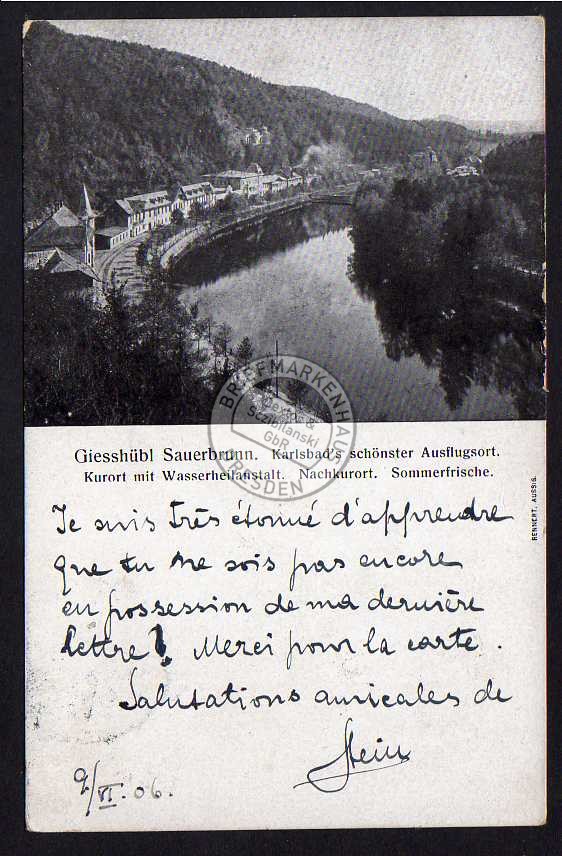 BRIEFMARKENHAUS
Sczibilanski
GbR
DRESDEN
Giesshübl Sauerbrunn. Karlsbad's schönster Ausflugsort.
Kurort mit Wasserheilanstalt. Nachkurort. Sommerfrische.
RENNERT, AUSSIG.
Je suis très étonné d'apprendre
que tu ne sois pas encore
en possession de ma dernière
lettre! Merci pour la carte.
Salutations amicales de
Stein
9/VI. 06.